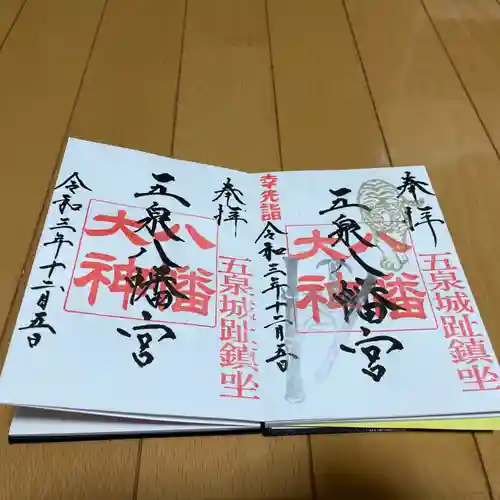 奉拝
五泉城趾鎮坐
八幡
大神
五泉八幡宮
令和三年十二月五日
奉拝
五泉城趾鎮坐
大神
五泉八幡宮
幸先詣
令和三年十二月五日